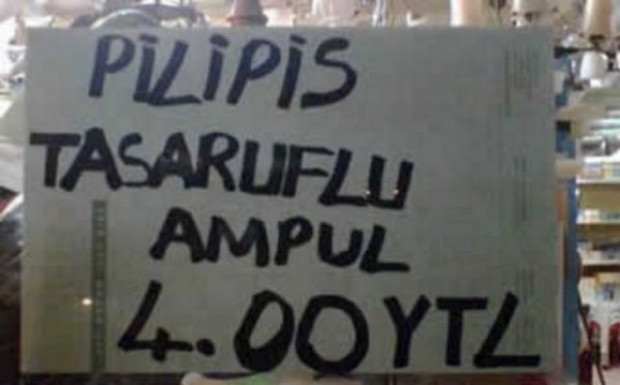 PİLİPİS
TASARUFLU
AMPUL
4.00YTL